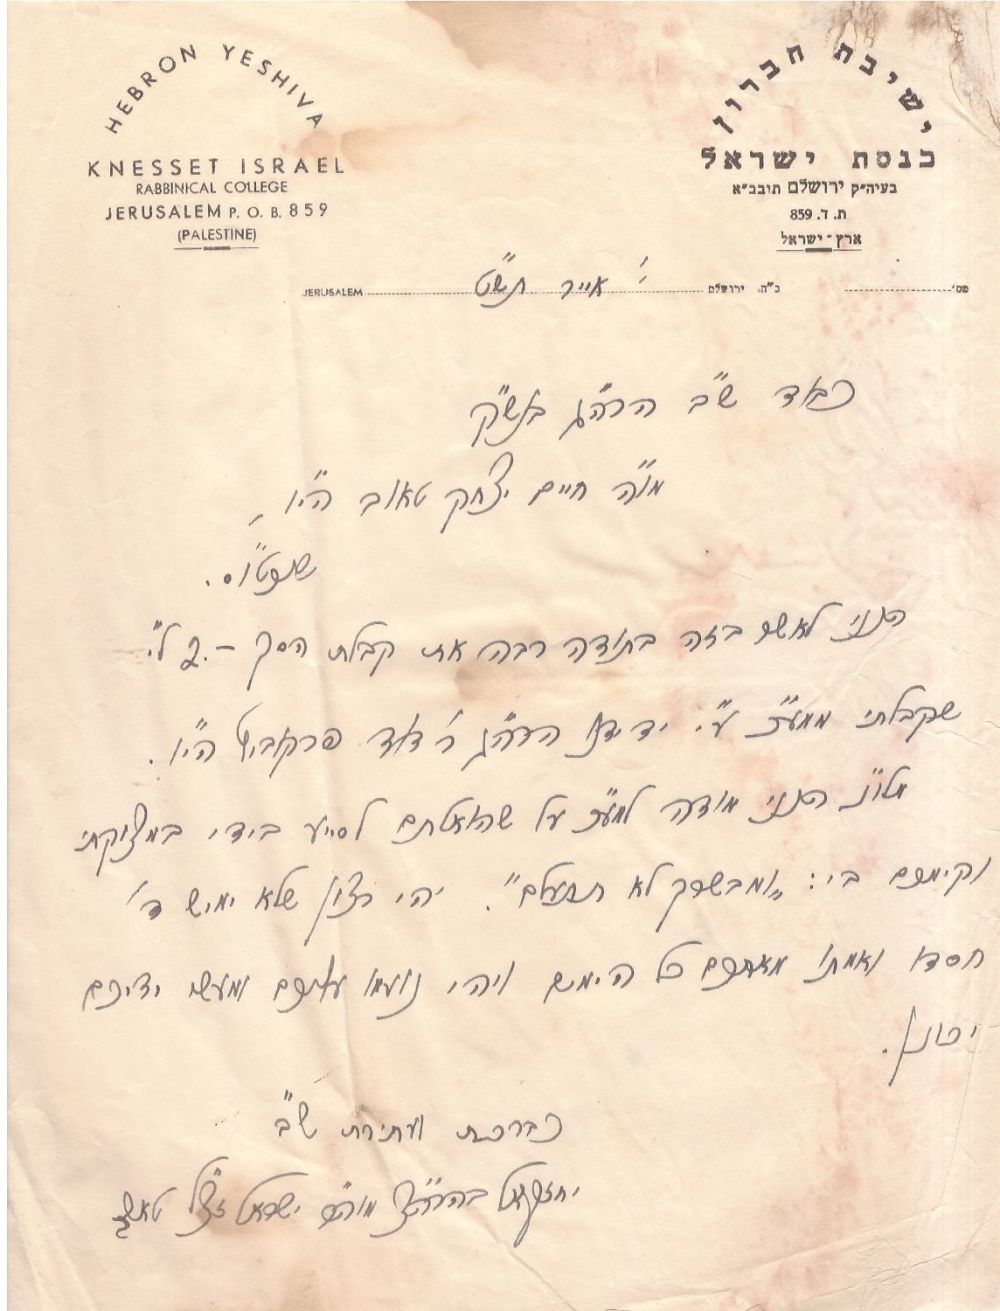 HEBRON YESHIVA
KNESSET ISRAEL
RABBINICAL COLLEGE
JERUSALEM P. O. B. 859
(PALESTINE)
ישיבת חברון
כנסת ישראל
בעיה"ק ירושלם תובב"א
ת. ד. 859
ארץ-ישראל
JERUSALEM י' אייר תש"ט ב"ה, ירושלם מס'
כבוד ש"ב הרה"ג בנש"ק
מו"ה חיים יצחק טאוב הי"ו,
שוכט"ו.
הנני לאשר בזה בתודה רבה את קבלת הסך -.2 ל"י
שקבלתי ממע"כ ע"י ידידנו הרה"ג ר' דוד פרקוביץ הי"ו.
הנני מודה למע"כ על שהואלתם לסייע בידי במצוקתי
וקימתם בי: "ומבשרך לא תתעלם". יהי רצון שלא ימיש ד'
חסדו ואמתו מאתכם כל הימים ויהי נועמו עליכם ומעשי ידיכם
יכונן.
בברכת ועתירת ש"ב
יחזקאל בהרה"צ מוה"ר ישראל זצ"ל טאוב